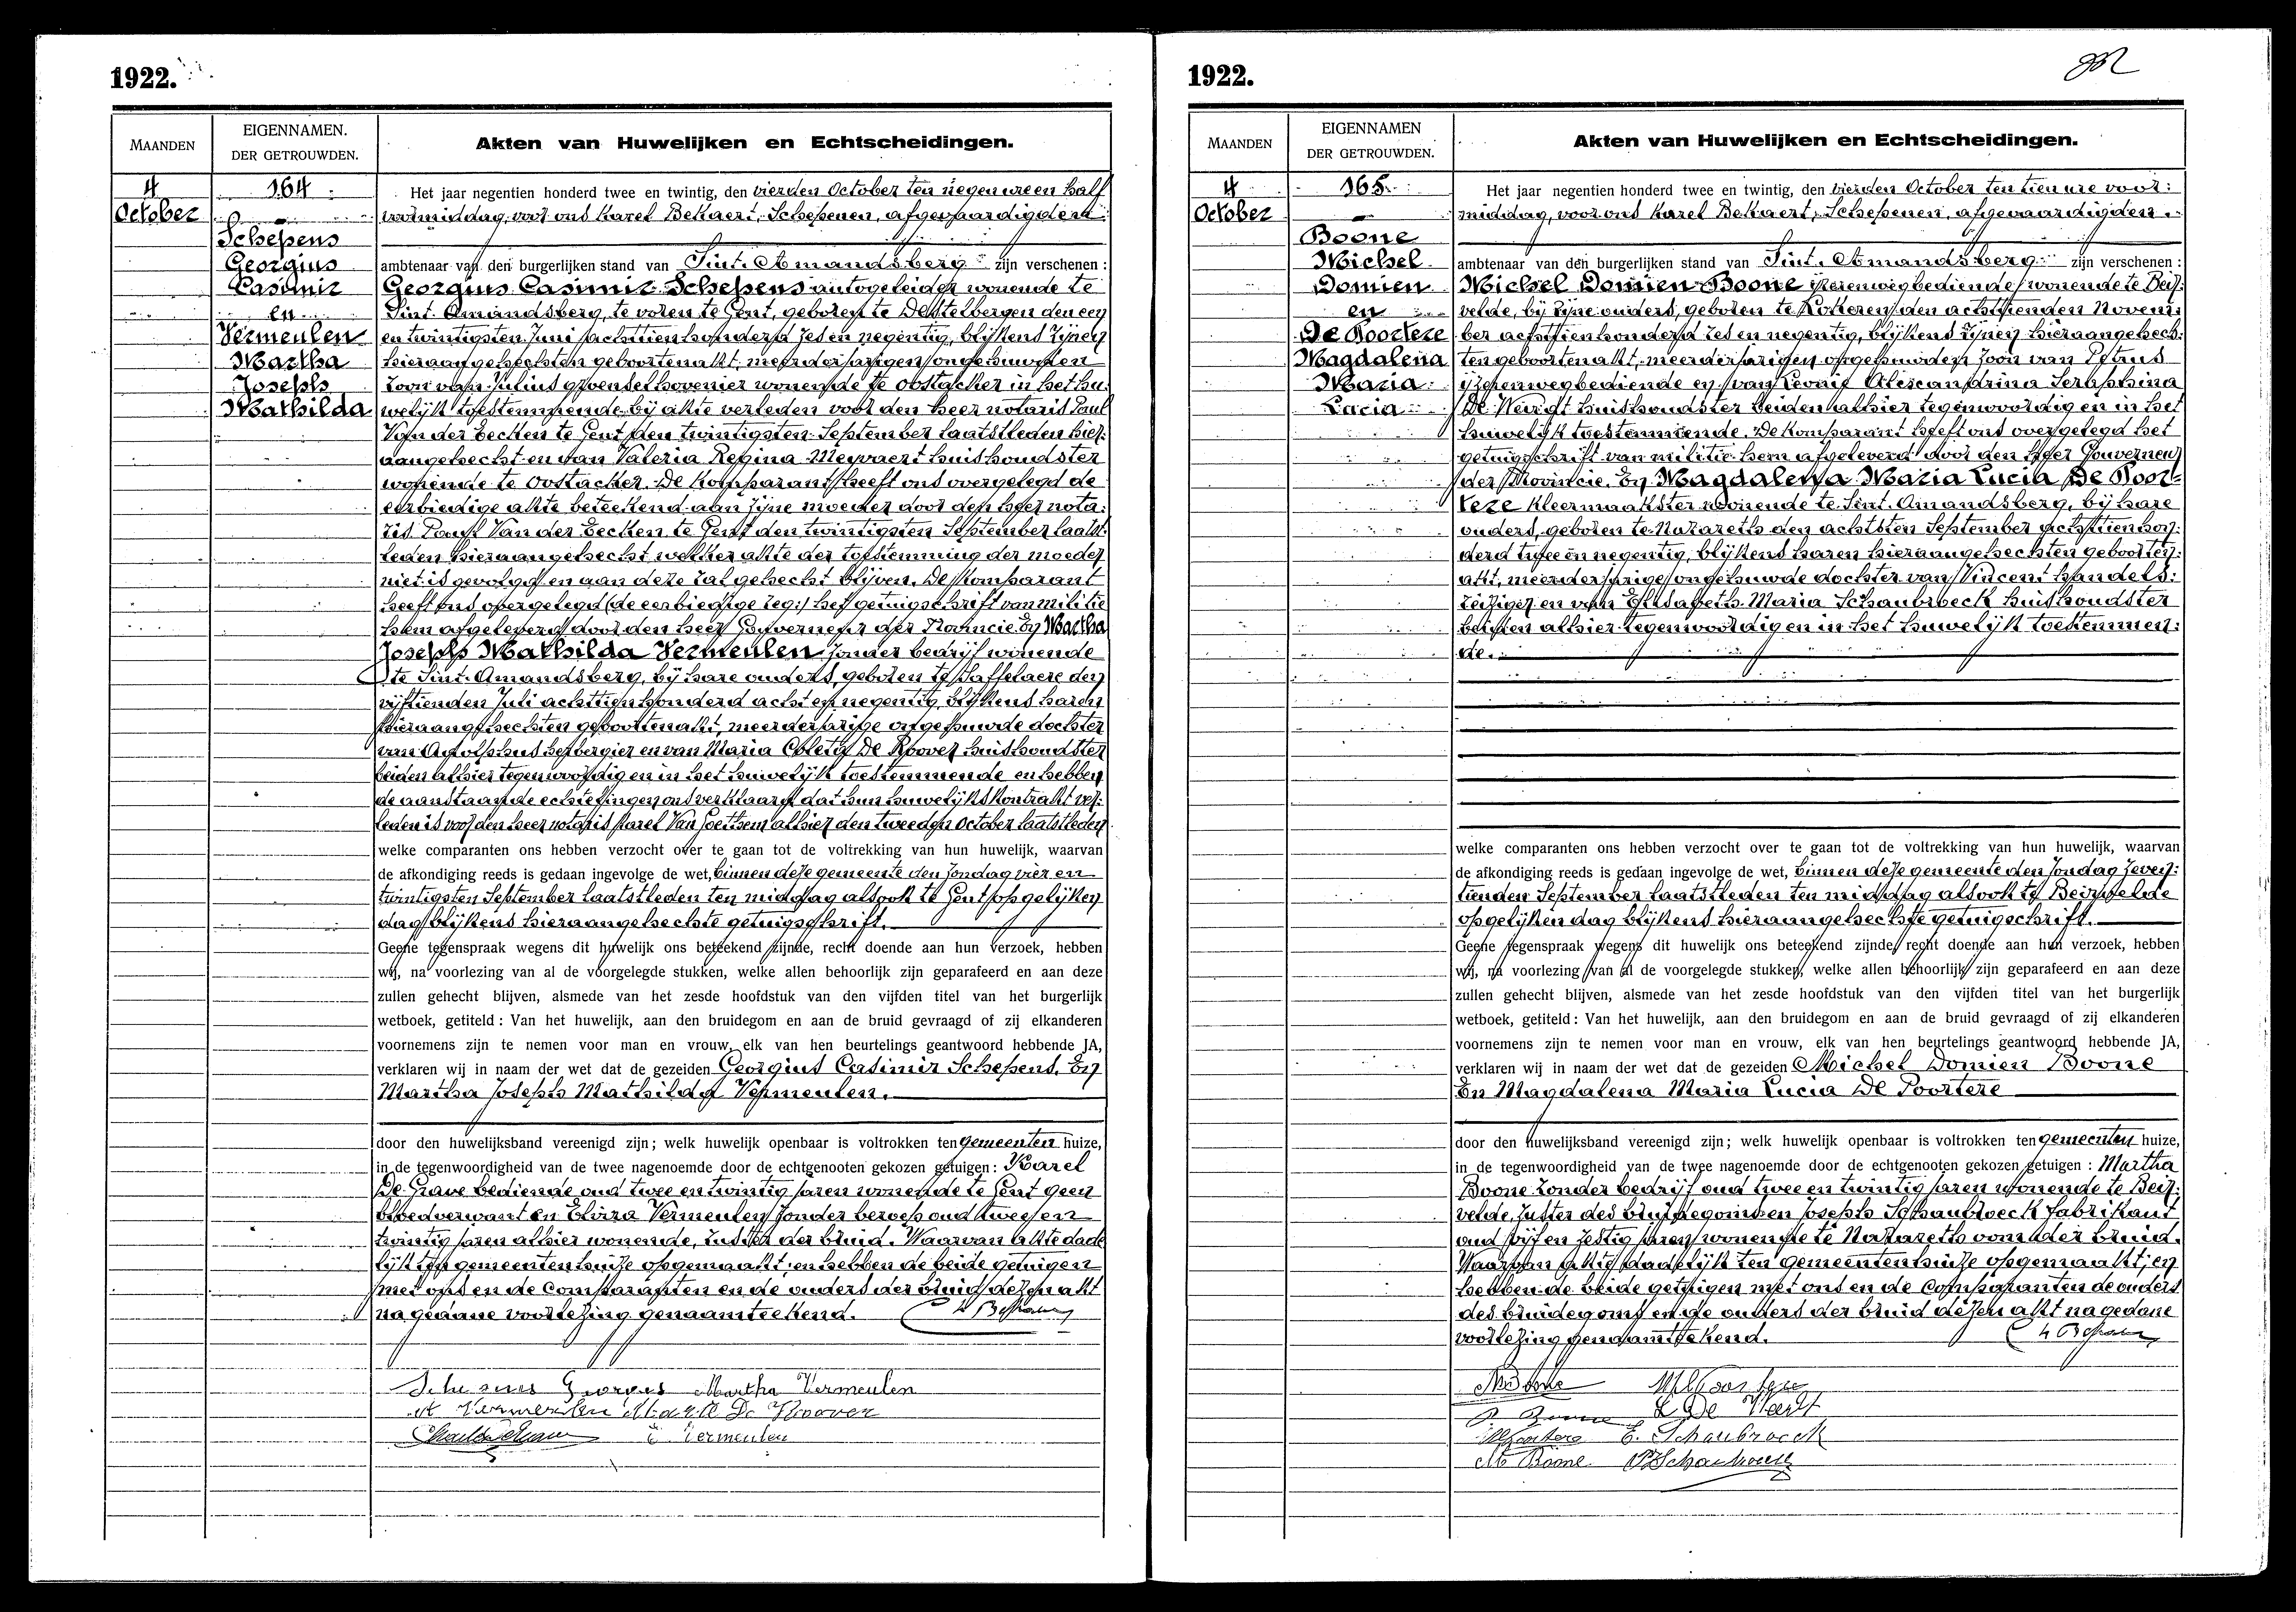 1922.
MAANDEN
EIGENNAMEN.
DER GETROUWDEN.
Akten van Huwelijken en Echtscheidingen.
4
October
164
Schepens
Georgius
Casimir
en
Vermeulen
Martha
Joseph
Mathilda
Het jaar negentien honderd twee en twintig, den vierden October ten negen ure en half
voormiddag, voor ons Karel Bekaert, Schepenen, afgevaardigden
ambtenaar van den burgerlijken stand van Sint-Amandsberg zijn verschenen:
Georgius Casimir Schepens autogeleider wonende te
Sint-Amandsberg, te voren te Gent, geboren te Destelbergen den een
en twintigsten Juni achttien honderd zes en negentig, blijkens zijnen
hieraangehechten geboortenakt, meerderjarigen ongehuwden
zoon van Julius groenselhovenier wonende te Oostacker in het hu-
welijk toestemmende bij akte verleden voor den heer notaris Paul
Van der Eecken te Gent den twintigsten September laatstleden hier-
aangehecht en van Valeria Regina Meyvaert huishoudster
wonende te Oostacker. De komparant heeft ons overgelegd de
eerbiedige akte beteekend aan zijne moeder door den heer nota-
ris Paul Van der Eecken te Gent den twintigsten September laatst-
leden hieraangehecht welker akte der toestemming der moeder
niet is gevolgd en aan deze zal gehecht blijven. De komparant
heeft ons overgelegd (de eerbiedige zeg:) het getuigschrift van militie
hem afgeleverd door den heer Gouverneur der Provincie. En Martha
Joseph Mathilda Vermeulen zonder bedrijf wonende
te Sint-Amandsberg, bij hare ouders, geboren te Saffelaere den
vijftienden Juli achttien honderd acht en negentig, blijkens haren
hieraangehechten geboortenakt, meerderjarige ongehuwde dochter
van Adolphus herbergier en van Maria Coleta De Roover huishoudster
beiden alhier tegenwoordig en in het huwelijk toestemmende en hebben
de aanstaande echtelingen ons verklaard dat hun huwelijkskontrakt ver-
leden is voor den heer notaris Karel Van Goethem alhier den tweeden October laatstleden
welke comparanten ons hebben verzocht over te gaan tot de voltrekking van hun huwelijk, waarvan
de afkondiging reeds is gedaan ingevolge de wet, binnen deze gemeente den zondag vier en
twintigsten September laatstleden ten middag alsook te Gent op gelijken
dag blijkens hieraangehechte getuigschrift.
Geene tegenspraak wegens dit huwelijk ons beteekend zijnde, recht doende aan hun verzoek, hebben
wij, na voorlezing van al de voorgelegde stukken, welke allen behoorlijk zijn geparafeerd en aan deze
zullen gehecht blijven, alsmede van het zesde hoofdstuk van den vijfden titel van het burgerlijk
wetboek, getiteld: Van het huwelijk, aan den bruidegom en aan de bruid gevraagd of zij elkanderen
voornemens zijn te nemen voor man en vrouw, elk van hen beurtelings geantwoord hebbende JA,
verklaren wij in naam der wet dat de gezeiden Georgius Casimir Schepens. En
Martha Joseph Mathilda Vermeulen.
door den huwelijksband vereenigd zijn; welk huwelijk openbaar is voltrokken ten gemeenten huize,
in de tegenwoordigheid van de twee nagenoemde door de echtgenooten gekozen getuigen: Karel
De Grave bediende oud twee en twintig jaren wonende te Gent geen
bloedverwant en Elvira Vermeulen zonder beroep oud twee en
twintig jaren alhier wonende, zuster der bruid. Waarvan akte dade-
lijk ten gemeentenhuize opgemaakt, en hebben de beide getuigen
met ons en de comparanten en de ouders der bruid dezen akt
na gedane voorlezing genaamteekend. K Bekaert
Schepens Georges Martha Vermeulen
A Vermeulen Maria De Roover
E Vermeulen
1922.
MAANDEN
EIGENNAMEN
DER GETROUWDEN.
Akten van Huwelijken en Echtscheidingen.
4
October
165
Boone
Michel
Domien
en
De Poortere
Magdalena
Maria
Lucia
Het jaar negentien honderd twee en twintig, den vierden October ten tien ure voor-
middag, voor ons Karel Bekaert, Schepenen, afgevaardigden
ambtenaar van den burgerlijken stand van Sint-Amandsberg zijn verschenen:
Michel Domien Boone ijzerenwegbediende, wonende te Beir-
velde, bij zijne ouders, geboren te Kalken den achttienden Novem-
ber achttien honderd zes en negentig, blijkens zijnen hieraangehech-
ten geboortenakt, meerderjarigen ongehuwden zoon van Pius
ijzerenwegbediende en van Leonie Alexandrina Seraphina
De Weirdt huishoudster beiden alhier tegenwoordig en in het
huwelijk toestemmende. De komparant heeft ons overgelegd het
getuigschrift van militie hem afgeleverd door den heer Gouverneur
der Provincie. En Magdalena Maria Lucia De Poor-
tere kleermaakster wonende te Sint-Amandsberg, bij hare
ouders, geboren te Nazareth den achtsten September achttien hon-
derd twee en negentig, blijkens haren hieraangehechten geboorten-
akt, meerderjarige ongehuwde dochter van Vincent handels-
reiziger en van Elisabeth Maria Schaubroeck huishoudster
beiden alhier tegenwoordig en in het huwelijk toestemmen-
de.
welke comparanten ons hebben verzocht over te gaan tot de voltrekking van hun huwelijk, waarvan
de afkondiging reeds is gedaan ingevolge de wet, binnen deze gemeente den zondag zeven-
tienden September laatstleden ten middag alsook te Beirvelde
op gelijken dag blijkens hieraangehechte getuigschrift.
Geene tegenspraak wegens dit huwelijk ons beteekend zijnde, recht doende aan hun verzoek, hebben
wij, na voorlezing van al de voorgelegde stukken, welke allen behoorlijk zijn geparafeerd en aan deze
zullen gehecht blijven, alsmede van het zesde hoofdstuk van den vijfden titel van het burgerlijk
wetboek, getiteld: Van het huwelijk, aan den bruidegom en aan de bruid gevraagd of zij elkanderen
voornemens zijn te nemen voor man en vrouw, elk van hen beurtelings geantwoord hebbende JA,
verklaren wij in naam der wet dat de gezeiden Michel Domien Boone
En Magdalena Maria Lucia De Poortere
door den huwelijksband vereenigd zijn; welk huwelijk openbaar is voltrokken ten gemeenten huize,
in de tegenwoordigheid van de twee nagenoemde door de echtgenooten gekozen getuigen: Martha
Boone zonder bedrijf oud twee en twintig jaren wonende te Beir-
velde, zuster des bruidegoms en Joseph Schaubroeck fabrikant
oud vijf en zestig jaren wonende te Nazareth oom der bruid.
Waarvan akte dadelijk ten gemeentenhuize opgemaakt, en
hebben de beide getuigen met ons en de comparanten de ouders
des bruidegoms en de ouders der bruid dezen akt na gedane
voorlezing genaamteekend. K Bekaert
L De Weerdt
E. Schaubroeck
M Boone